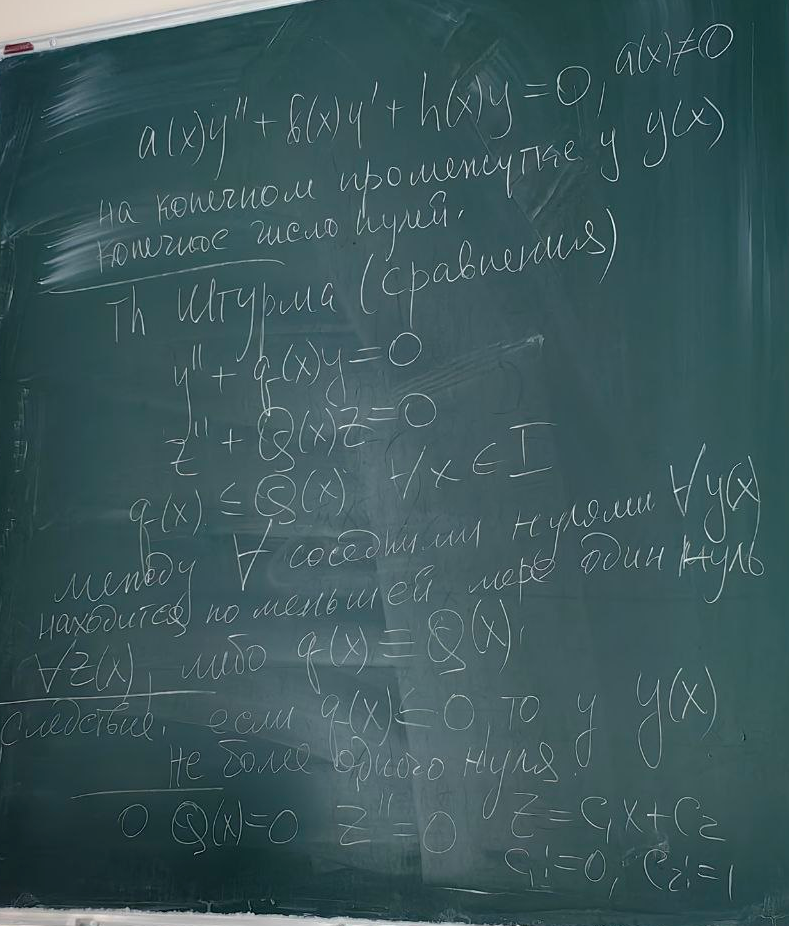 a(x)y'' + b(x)y' + h(x)y = 0, a(x)≠0
на конечном промежутке у y(x)
конечное число нулей.
Th Штурма (сравнения)
y'' + q(x)y = 0
z'' + Q(x)z = 0
q(x) ≤ Q(x) ∀x ∈ I
между ∀ соседними нулями ∀y(x)
находится по меньшей мере один нуль
∀z(x), либо q(x) ≡ Q(x).
Следствие. если q(x) ≤ 0, то у y(x)
не более одного нуля.
0 Q(x)=0 z''=0 z=C₁x+C₂
C₁:=0, C₂:=1